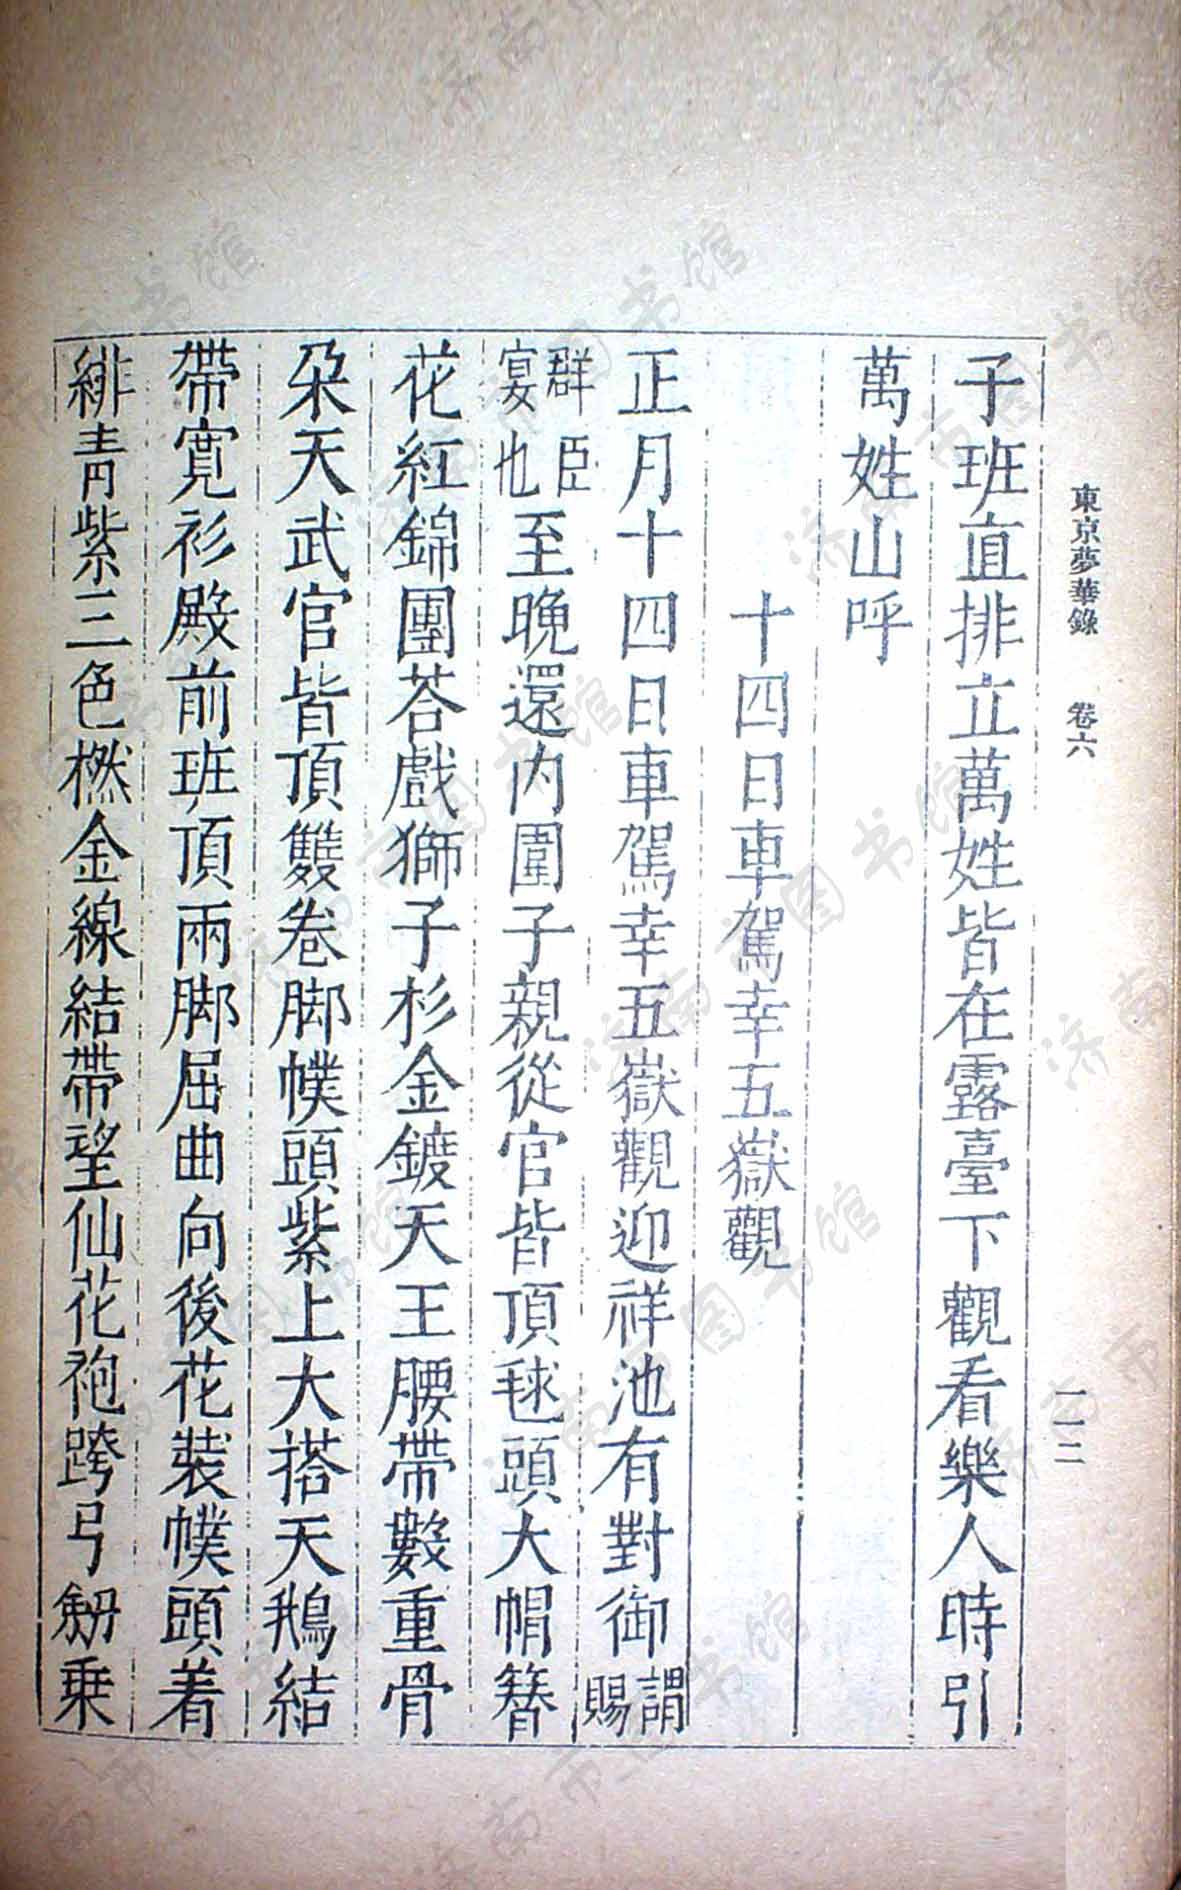 東京夢華錄　卷六　一二
子班直排立萬姓皆在露臺下觀看樂人時引
萬姓山呼
十四日車駕幸五嶽觀
正月十四日車駕幸五嶽觀迎祥池有對御謂賜
群臣宴也至晚還內圍子親從官皆頂毬頭大帽簪
花紅錦團荅戲獅子衫金鍍天王腰帶數重骨
朶天武官皆頂雙卷脚幞頭紫上大搭天鵝結
帶寬衫殿前班頂兩脚屈曲向後花裝幞頭着
緋青紫三色橪金線結帶望仙花袍跨弓劒乗
济南市图书馆